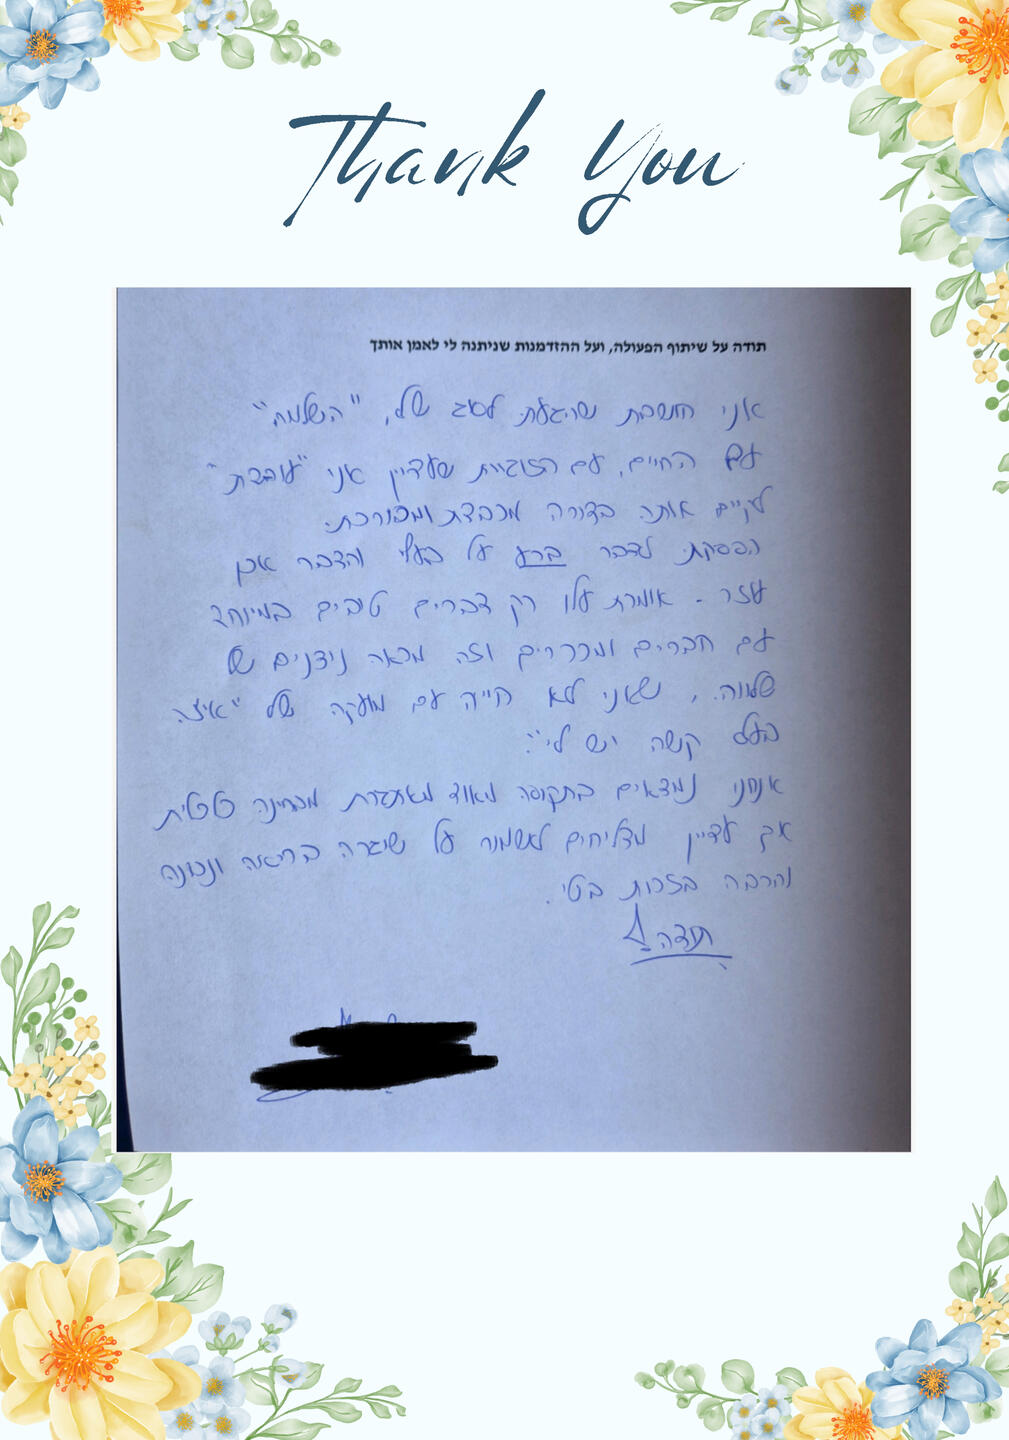 Thank You
תודה על שיתוף הפעולה, ועל ההזדמנות שניתנה לי לאמן אותך
אני חושבת שהגעתי לסוג של, "השלמה"
עם החיים, עם הזוגיות שעדיין אני "עובדת"
לקיים אותה בצורה מכבדת ומפורכת.
הפסקתי לדבר ברע על בעלי והדבר אכן
עזר - אומרת עלו רק דברים טובים במיוחד
עם חברים ומכרים וזה מראה ניצנים של
שלווה, שאני לא חייה עם מועקה של "איזה
בעל קשה יש לי".
אנחנו נמצאים בתקופה מאוד מאתגרת מבחינה
אך עדיין מצליחים לשמור על שיגרה בריאה ונכונה
והרבה בזכות בטי.
תודה!